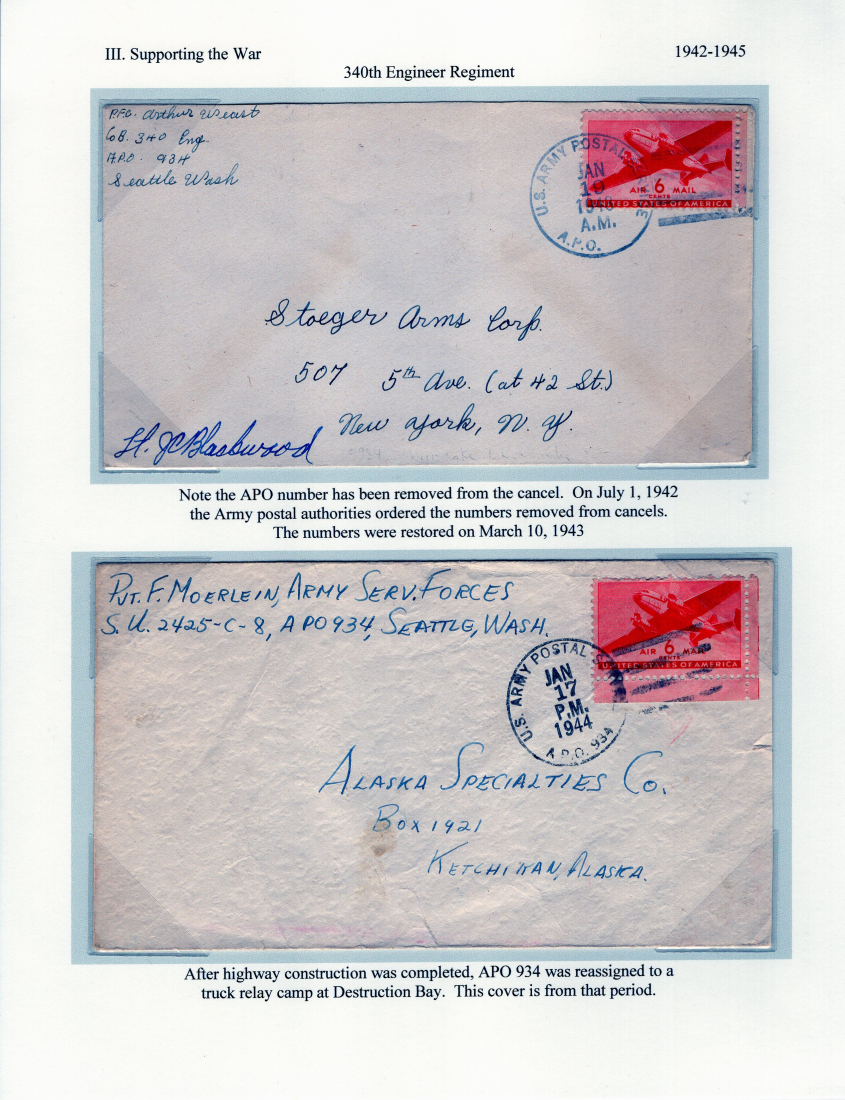 III. Supporting the War
1942-1945
340th Engineer Regiment
P.F.C. Arthur
Co B. 340 Eng.
A.P.O. 934
Seattle Wash
U.S. ARMY POSTAL
JAN
19
A.M.
A.P.O.
AIR 6 MAIL
CENTS
UNITED STATES OF AMERICA
Stoeger Arms Corp.
507 5th Ave. (at 42 St.)
New York, N. Y.
H. JC Blashwood
Note the APO number has been removed from the cancel. On July 1, 1942
the Army postal authorities ordered the numbers removed from cancels.
The numbers were restored on March 10, 1943
PVT. F. MOERLEIN, ARMY SERV. FORCES
S. U. 2425-C-8, APO 934, SEATTLE, WASH.
AIR 6 MAIL
CENTS
UNITED STATES OF AMERICA
U.S. ARMY POSTAL
JAN
17
P.M.
1944
A.P.O. 934
ALASKA SPECIALTIES CO.
BOX 1921
KETCHIKAN, ALASKA.
After highway construction was completed, APO 934 was reassigned to a
truck relay camp at Destruction Bay. This cover is from that period.